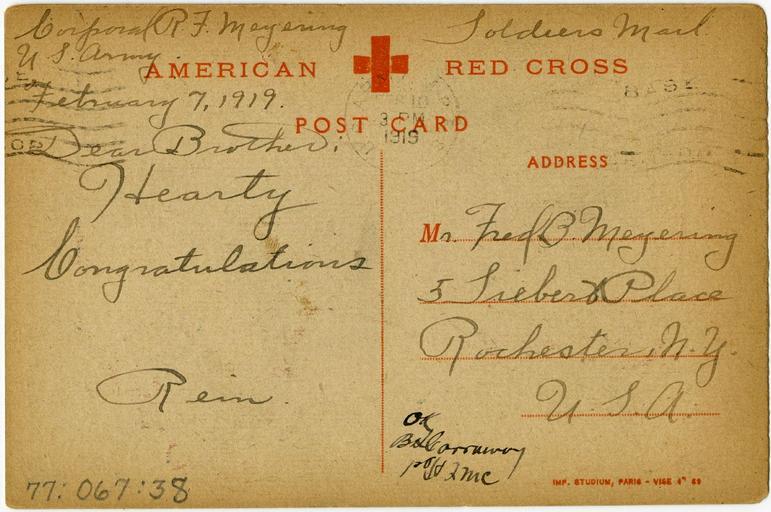 Corporal R. F. Meyering
U. S. Army
Soldiers Mail
AMERICAN RED CROSS
February 7, 1919.
POST CARD
3 PM
1919
BASE
Dear Brother:
Hearty
Congratulations
Rein.
ADDRESS
Mr. Fred B. Meyering
5 Siebert Place
Rochester, N.Y.
U. S. A.
OK
77:067:38
IMP. STUDIUM, PARIS - VISÉ 4º 69